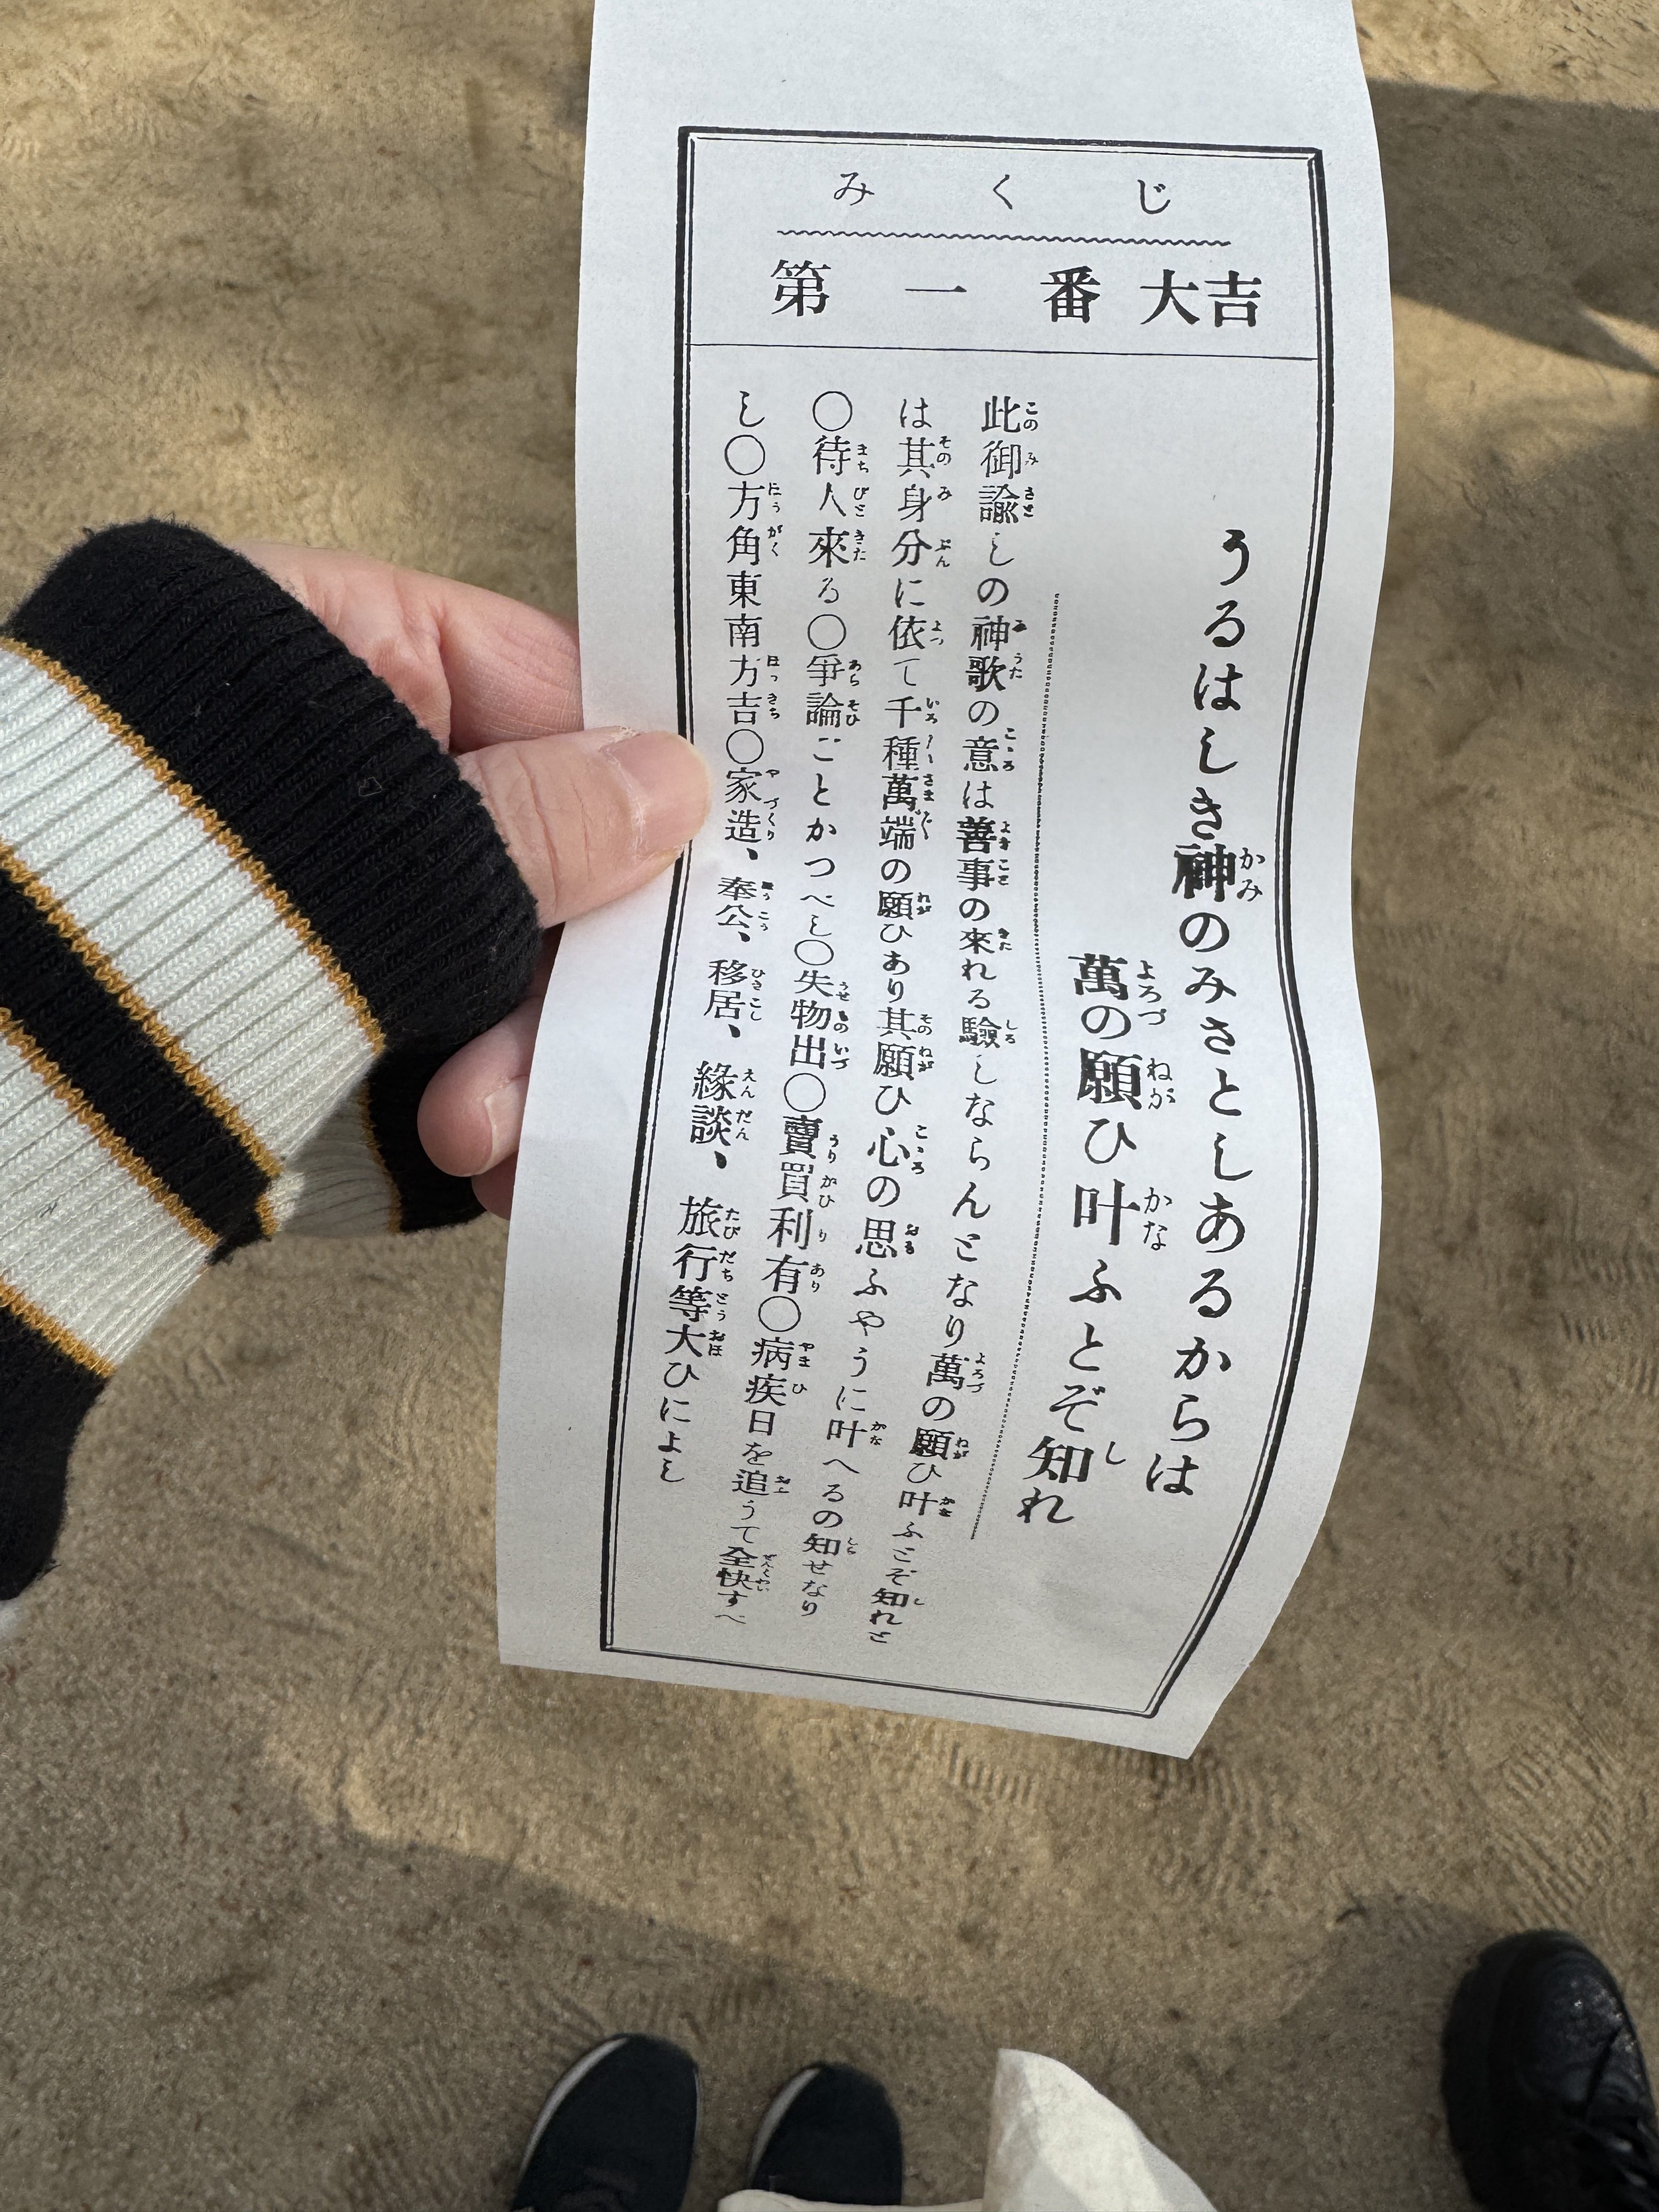 みくじ
第一番 大吉
うるはしき神のみさとしあるからは
萬の願ひ叶ふとぞ知れ
此御諭しの神歌の意は善事の來れる驗しならんとなり萬の願ひ叶ふとぞ知れと
は其身分に依て千種萬端の願ひあり其願ひ心の思ふやうに叶へるの知せなり
〇待人來る〇爭論ごとかつべし〇失物出〇賣買利有〇病疾日を追うて全快すべ
し〇方角東南方吉〇家造、奉公、移居、緣談、旅行等大ひによし